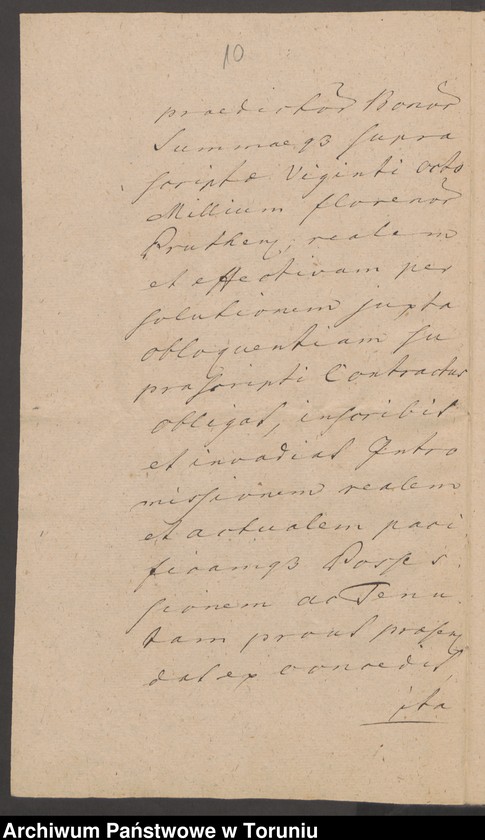 10
praedictor Bonor
Summaeq3 supra
scriptae Viginti octo
Millium florenor
Pruthen; realem
et effectivam per
solutionem juxta
obloquentiam su
prascripti Contractus
obligat, inscribit
et invadiat Intro
missionem realem
et actualem paci
ficamq3 Posses
sionem ac Tenu
tam prout praesen
dat ex concedit,
ita
Archiwum Państwowe w Toruniu